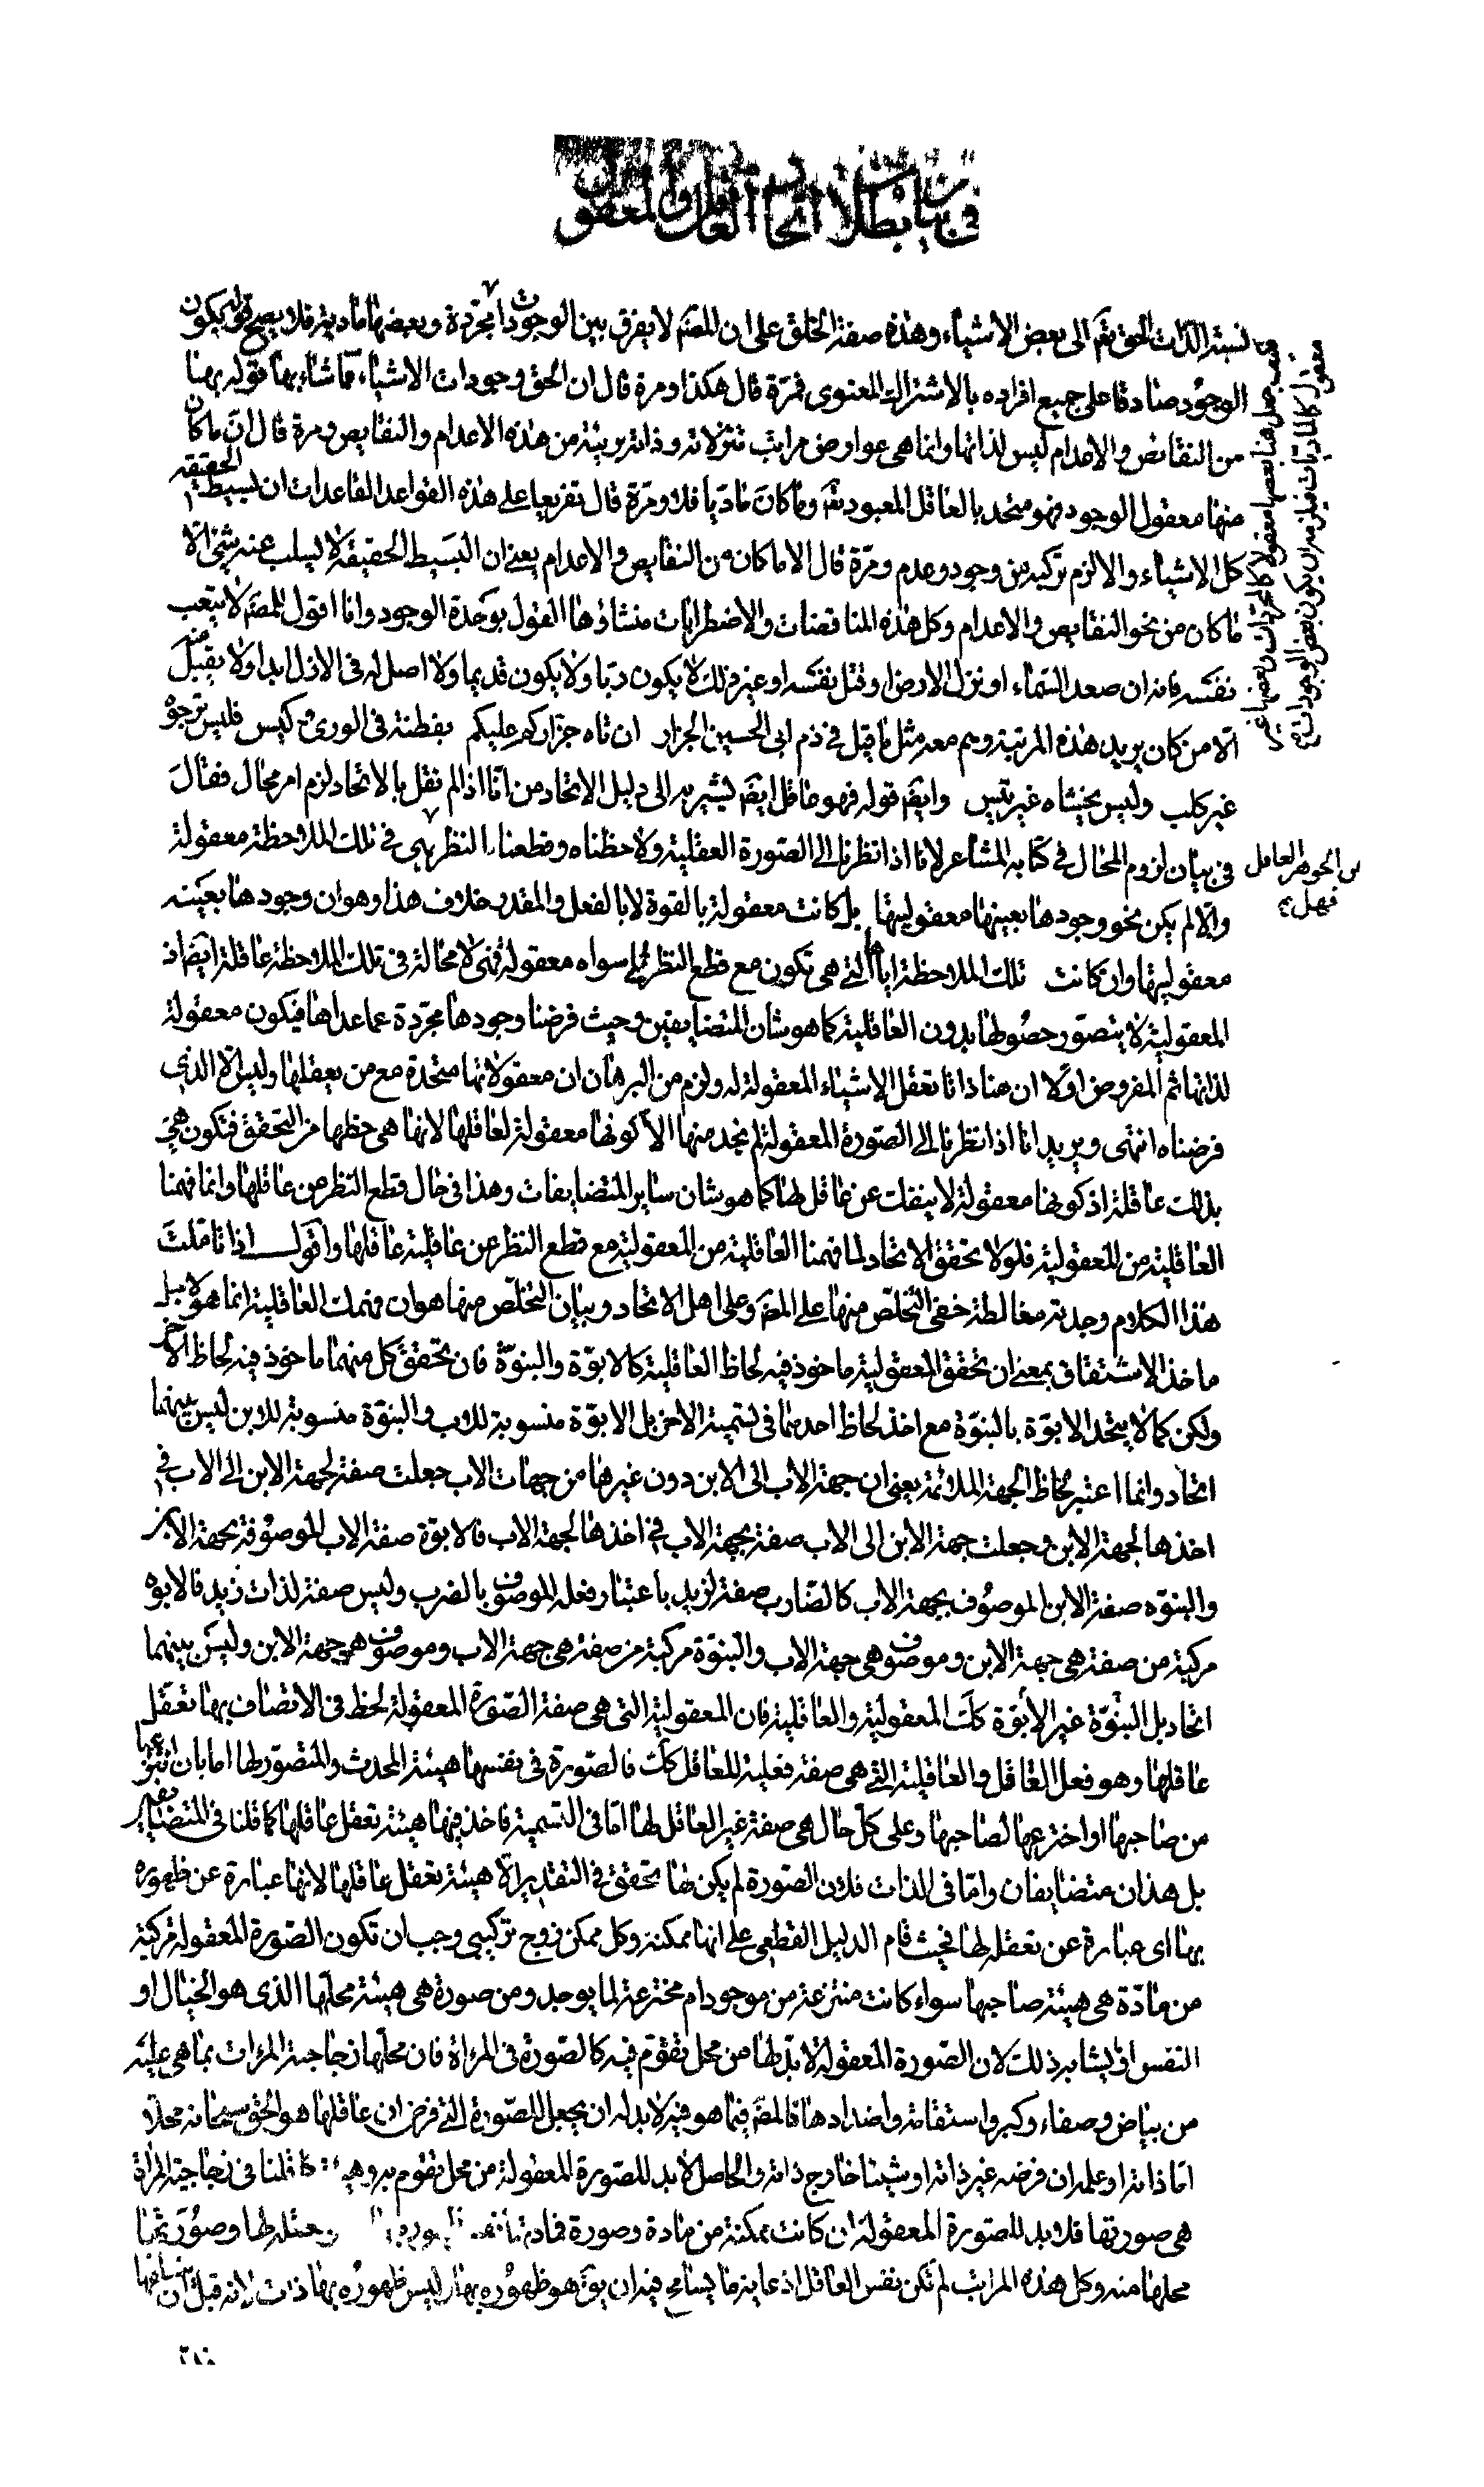 في بيان بطلان اتحاد العاقل والمعقول
نسبته الذات الحق تقم الى بعض الاشياء وهذه صفة الخلق على ان المصَم لا يفرق بين الوجودات مجردة وبعضها مادية فلا يصح قوله يكون
الوجود صادقا على جميع افراده بالاشتراك المعنوى فمرّة قال هكذا ومرة قال ان الحق وجودات الاشياء فما شاء بها قوله بهنا
من النقائص والاعدام ليس لذاتها وانما هى عوارض مراتب تنزلاته وذاته بريئة من هذه الاعدام والنقايص ومرة قال انّ ما كان
منها معقول الوجود فهو متحد بالعاقل المعبود تقم وما كان ماديا فلا ومرّة قال تفريعا على هذه القواعد القاعدات ان بسيط الحقيقة
كل الاشياء والا لزم تركيبه من وجود وعدم ومرّة قال الا ما كان من النقايص والاعدام يعنى ان البسيط الحقيقة لا يسلب عنه شئ الّا
ما كان من نحو النقايص والاعدام وكل هذه المناقضات والاضطرابات منشاؤها القول بوحدة الوجود وانا اقول للمصَم لا يتعب
نفسه فانه ان صعد السماء او نزل الارض او قتل نفسه او غير ذلك لا يكون ربّا ولا يكون قديما ولا اصل له فى الازل ابدا ولا يقبل منه
الّا من كان يريد هذه المرتبة وهم معه مثل ما قيل فى ذم ابى الحسين الجزار ان تاه جزاركم عليكم بفطنة فى الورى وكيس فليس يرجوه
غير كلب وليس يخشاه غير تيس وايضَم قوله فهو عاقل ايضَم يشير به الى دليل الاتحاد من انّا اذا لم نقل بالاتحاد لزم امر محال فقال
فى بيان لزوم المحال فى كتابه المشاعر لانا اذا نظرنا الى الصورة العقلية ولاحظناه وقطعنا النظر فهى فى تلك الملاحظة معقولة
والّا لم يكن نحو وجودها بعينها معقوليتها بل كانت معقولة بالقوة لا بالفعل والمقدر خلاف هذا وهو ان وجودها بعينه
معقوليتها وان كانت تلك الملاحظة اياها التى هى تكون مع قطع النظر عما سواه معقولة فهى لا محالة فى تلك الملاحظة عاقلة ايضَم اذ
المعقولية لا يتصور حصولها بدون العاقلية كما هو شان المتضايفين وحيث فرضنا وجودها مجردة عما عداها فيكون معقولة
لذاتها ثم المفروض اوّلا ان هنا ذاتا تعقل الاشياء المعقولة له ولزم من البرهان ان معقولاتها متحدة مع من يعقلها وليس الّا الذى
فرضناه انتهى ويريد انا اذا نظرنا الى الصورة المعقولة لم نجد منها الّا كونها معقولة لعاقلها لانها هى حظها من التحقق فتكون هى
بذلك عاقلة اذ كونها معقولة لا ينفك عن عاقل لها كما هو شان ساير المتضايفات وهذا فى حال قطع النظر من عاقلها وانما فهمنا
العاقلية من المعقولية فلولا تحقق الاتحاد لما فهمنا العاقلية من المعقولية مع قطع النظر عن عاقلية عاقلها واقول اذا تاملت
هذا الكلام وجدته مغالطة خفى التخلّص منها على المصَم وعلى اهل الاتحاد وبيان التخلّص منها هو ان فهمك العاقلية انما هو لاجل
ماخذ الاشتقاق بمعنى ان تحقق المعقولية ماخوذ فيه لحاظ العاقلية كالابوّة والبنوّة فان تحقق كل منهما ماخوذ فيه لحاظ الآخر
ولكن كما لا يتحد الابوّة بالبنوّة مع اخذ لحاظ احدهما فى تسمية الآخر بل الابوّة منسوبة للاب والبنوّة منسوبة للابن ليس بينهما
اتحاد وانما اعتبر لحاظ الجهة الملائمة يعنى ان جهة الاب الى الابن دون غيرها من جهات الاب جعلت صفة لجهة الابن الى الاب فى
اخذها لجهة الابن وجعلت جهة الابن الى الاب صفة بجهة الاب فى اخذها لجهة الاب فالابوّة صفة الاب الموصوفة بجهة الابن
والبنوّه صفة الابن الموصوف بجهة الاب كالضارب صفة لزيد باعتبار فعله الموصوف بالضرب وليس صفة لذات زيد فالابوه
مركبة من صفة هى جهة الابن وموصوف هى جهة الاب والبنوّة مركبة من صفة هى جهة الاب وموصوف هو جهة الابن وليس بينهما
اتحاد بل البنوّة غير الابوّة كك المعقولية والعاقلية فان المعقولية التى هى صفة الصّورة المعقولة لحظ فى الاتصاف بها تعقل
عاقلها وهو فعل العاقل والعاقلية التى هى صفة فعلية للعاقل كك فالصّورة فى نفسها هيئة المحدث والمتصوّر لها اما بان انتزعها
من صاحبها او اخترعها لصاحبها وعلى كل حال هى صفة غير العاقل لها امّا فى التسمية فاخذ فيها هيئة تعقل عاقلها كما قلنا فى المتضايفين
بل هذان متضايفان وامّا فى الذات فلان الصّورة لم يكن لها تحقق فى التقدير الّا هيئة تعقل عاقلها لانها عبارة عن ظهوره
بها اى عبارة عن تعقله لها فحيث قام الدليل القطعى على انها ممكنة وكل ممكن زوج تركيبى وجب ان تكون الصّورة المعقولة مركبة
من مادّة هى هيئة صاحبها سواء كانت منتزعة من موجود ام مخترعة لما يوجد ومن صورة هى هيئة محلها الذى هو الخيال او
النفس او ما يشابه ذلك لان الصّورة المعقولة لا بدّ لها من محل تتقوّم فيه كالصّورة فى المرءاة فان محلّها زجاجة المرءات بما هى عليه
من بياض وصفاء وكبر واستقامة واضدادها فالمصَم فيما هو فيه لا بد له ان يجعل للصّورة التى فرض ان عاقلها هو الحق سبحانه محلّا
امّا ذاته او علمه ان فرضه غير ذاته او شيئا خارج ذاته والحاصل لا بد للصّورة المعقولة من محل تقوم به وهيئة كما قلنا فى زجاجة المرأة
هى صورتها فلا بد للصّورة المعقولة ان كانت ممكنة من مادة وصورة فمادتها تعقله لها وصورتها
محلها منه وكل هذه المراتب لم تكن نفس العاقل اذ غاية ما يتسامح فيه ان يق هو ظهوره بها وليس ظهوره بها ذات لانه قبل ان
معقول كالماديات فيلزمه ان يكون بعض الوجودات
من الجوهر العاقل
فهل
٢٨٠